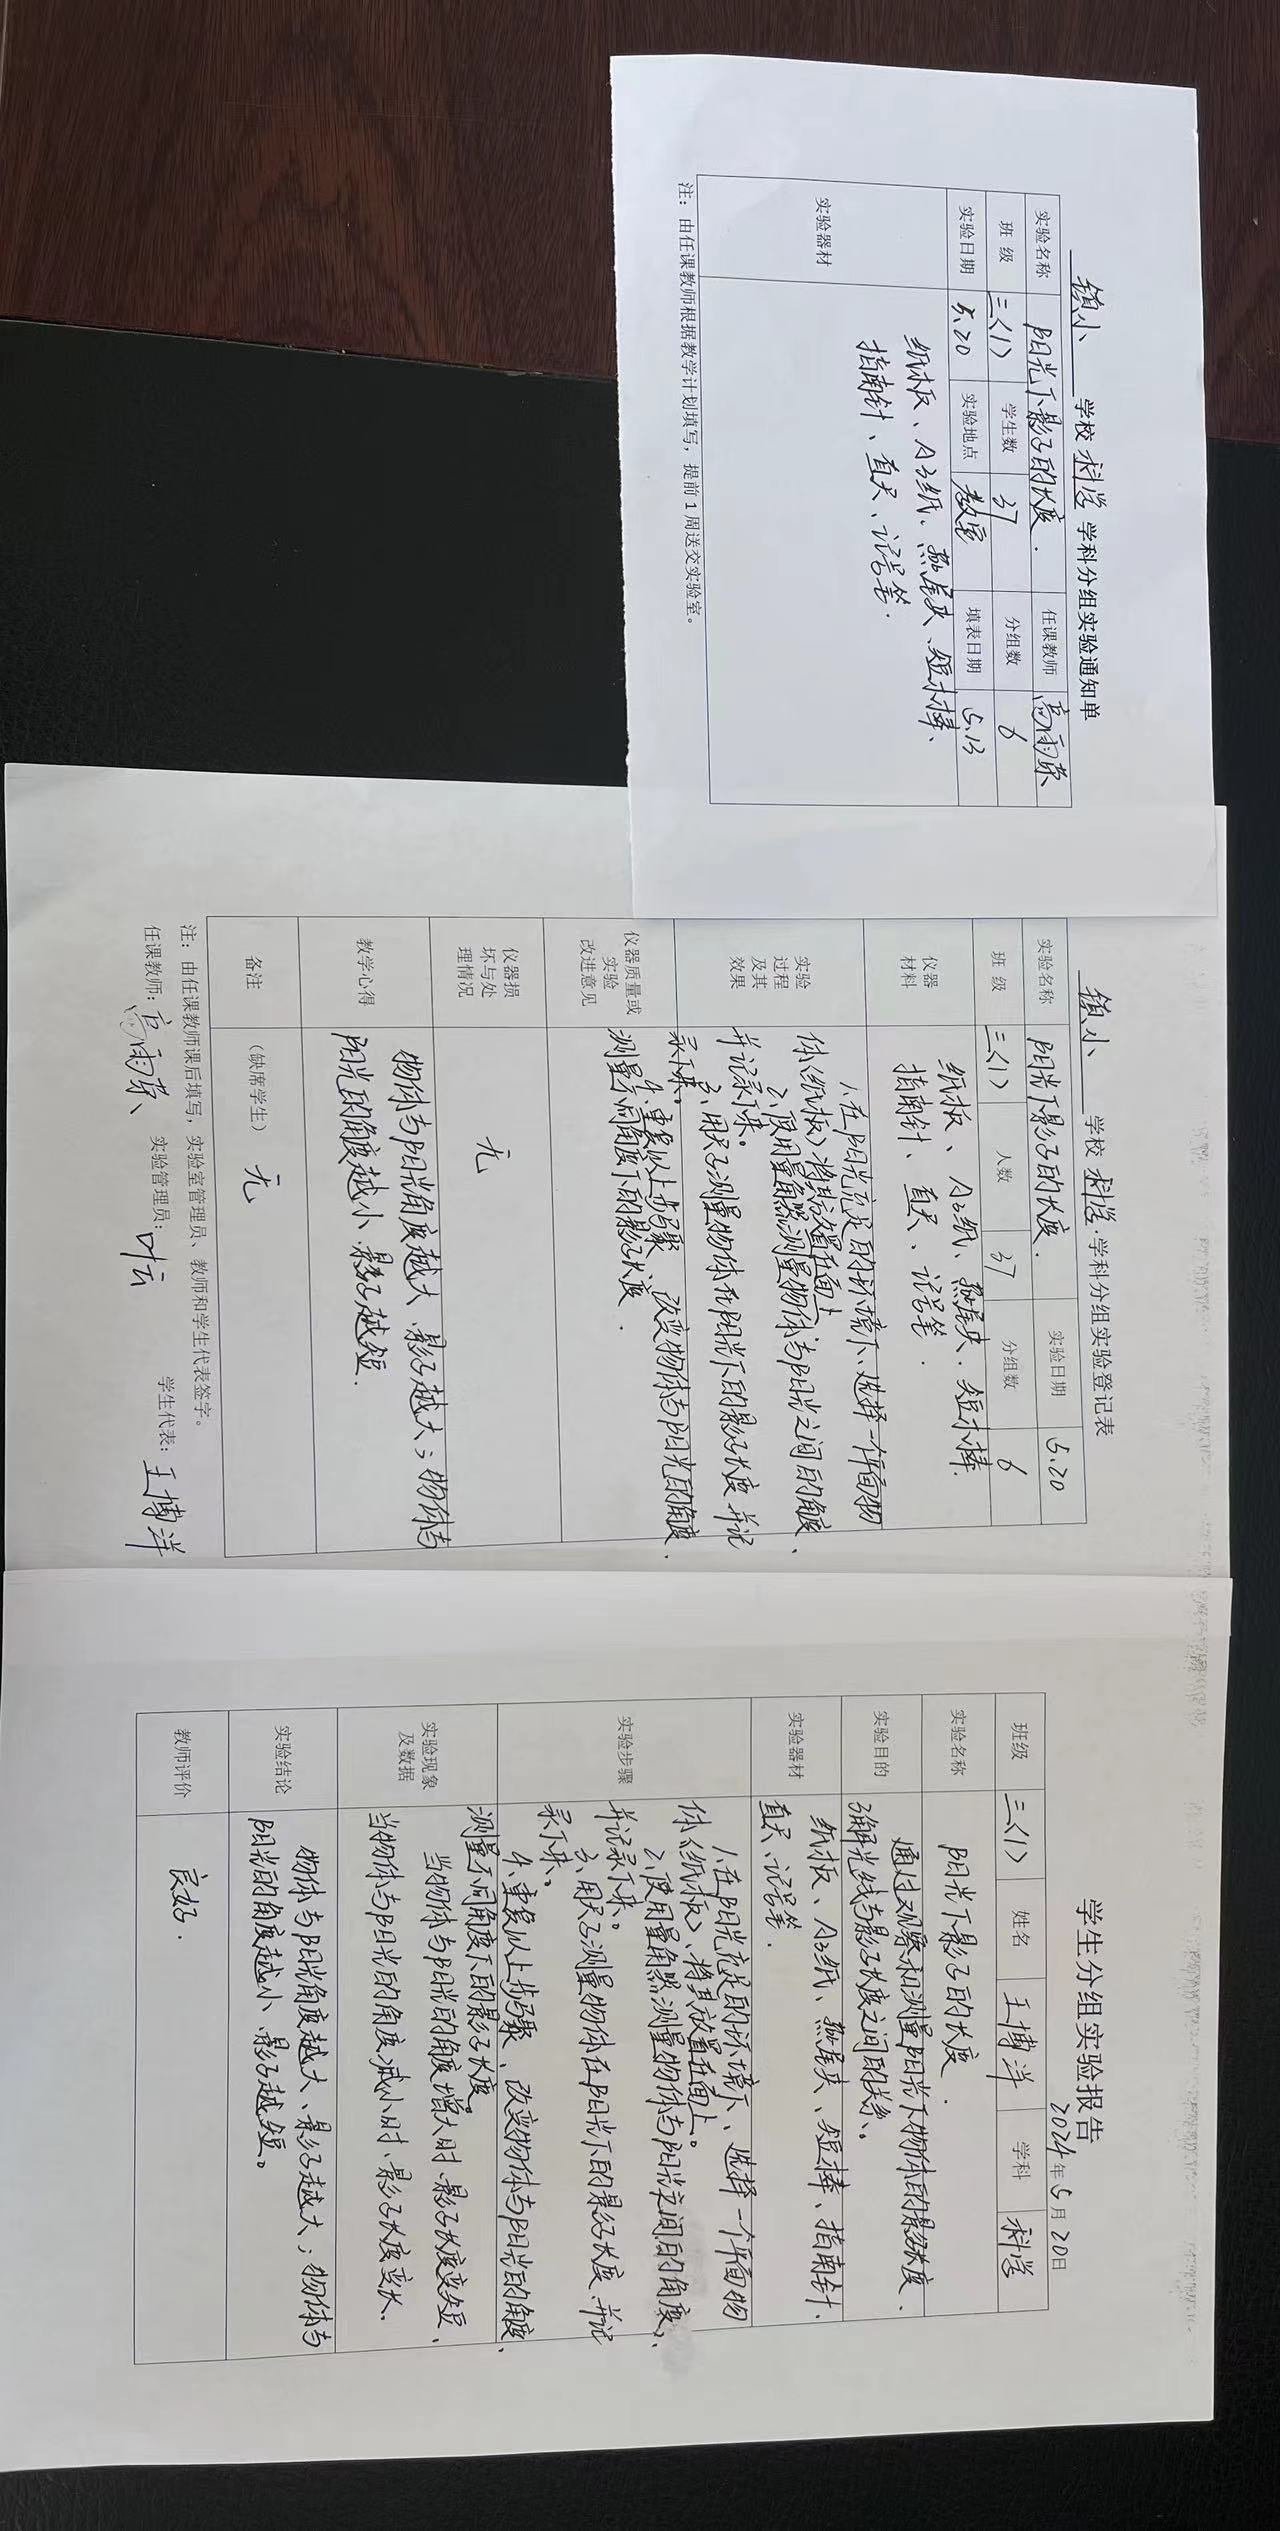 镇小 学校 科学 学科分组实验通知单
实验名称 阳光下影子的长度. 任课教师 高雨荣
班 级 三<1> 学生数 37 分组数 6
实验日期 5.20 实验地点 教室 填表日期 5.13
实验器材
纸板、A3纸、燕尾夹、短木棒、
指南针、直尺、记号笔.
注：由任课教师根据教学计划填写，提前1周送交实验室。
镇小 学校 科学.学科分组实验登记表
实验名称 阳光下影子的长度. 实验日期 5.20
班 级 三<1> 人数 37 分组数 6
仪器
材料
纸板、A3纸、燕尾夹.短木棒.
指南针、直尺、记号笔.
实验
过程
及其
效果
1.在阳光充足的环境下、选择一个平面物
体(纸板)将其放置在面上
2、使用量角器测量物体与阳光之间的角度、
并记录下来。
3、用尺子测量物体在阳光下的影子长度 并记
录下来。
4、重复以上步骤、改变物体与阳光的角度.
测量不同角度下的影子长度.
仪器质量或
实验
改进意见
仪器损
坏与处
理情况
无
教学心得
物体与阳光角度越大、影子越大；物体与
阳光的角度越小.影子越短.
备注 (缺席学生) 无
注：由任课教师课后填写，实验室管理员、教师和学生代表签字。
任课教师：高雨荣 实验管理员：叶云 学生代表：王博洋
学生分组实验报告
2024年5月20日
班级 三<1> 姓名 王博洋 学科 科学
实验名称 阳光下影子的长度.
实验目的
通过观察和测量阳光下物体的影子长度.
了解光线与影子长度之间的关系.
实验器材
纸板、A3纸、燕尾夹、短棒、指南针.
直尺、记号笔.
实验步骤
1.在阳光充足的环境下、选择一个平面物
体(纸板)、将其放置在面上。
2、使用量角器测量物体与阳光之间的角度、
并记录下来。
3、用尺子测量物体在阳光下的影子长度、并记
录下来。
4、重复以上步骤、改变物体与阳光的角度、
测量不同角度下的影子长度
实验现象
及数据
当物体与阳光的角度增大时.影子长度变短、
当物体与阳光的角度减小时、影子长度变长.
实验结论
物体与阳光角度越大、影子越大；物体与
阳光的角度越小、影子越短。
教师评价 良好.